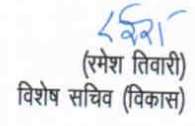 (रमेश तिवारी)
विशेष सचिव (विकास)